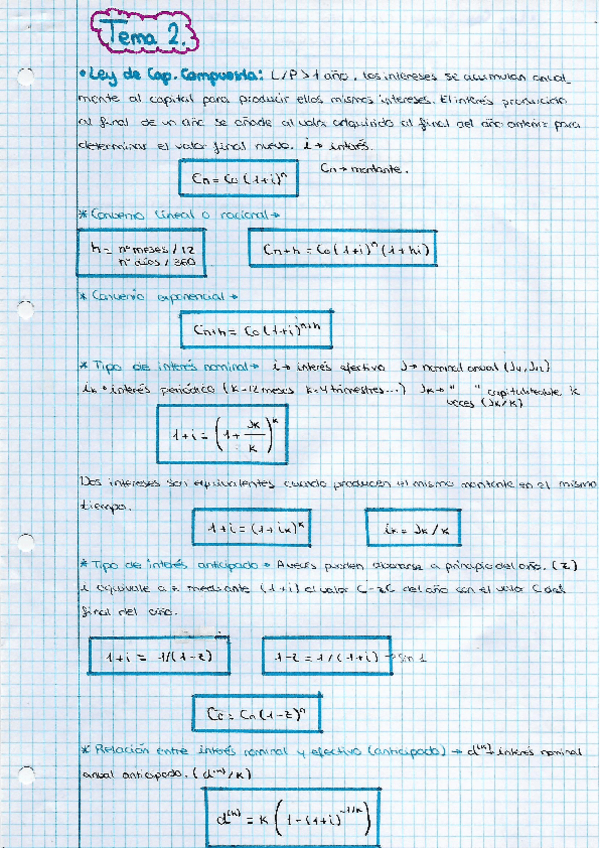 Tema 2.
• Ley de Cap. Compuesta: L/P > 1 año. Los intereses se acumulan anual_
mente al capital para producir ellos mismos intereses. El interés producido
al final de un año se añade al valor adquirido al final del año anterior para
determinar el valor final nuevo. i → interés.
Cn = Co (1+i)^n
Cn → montante.
* Convenio lineal o racional →
h = nº meses / 12
nº días / 360
Cn+h = Co (1+i)^n (1+hi)
* Convenio exponencial →
Cn+h = Co (1+i)^n+h
* Tipo de interés nominal → i → interés efectivo J → nominal anual (J4, J12)
ik • interés periódico (k-12 meses k-4 trimestres...) Jk → " " capitalizable k
veces (Jk/k)
1+i = (1 + Jk/k)^k
Dos intereses son equivalentes cuando producen el mismo montante en el mismo
tiempo.
1+i = (1+ik)^k
ik = Jk/k
* Tipo de interés anticipado → A veces pueden abonarse a principio del año. (z)
i equivale a z mediante (1+i) el valor C-zC del año con el valor C del
final del año.
1+i = 1/(1-z)
1-z = 1/(1+i) → sin 1
Co = Cn (1-z)^n
* Relación entre interés nominal y efectivo (anticipado) → d^(k) → interés nominal
anual anticipado. (d^(k)/k)
d^(k) = k (1-(1+i)^-1/k)